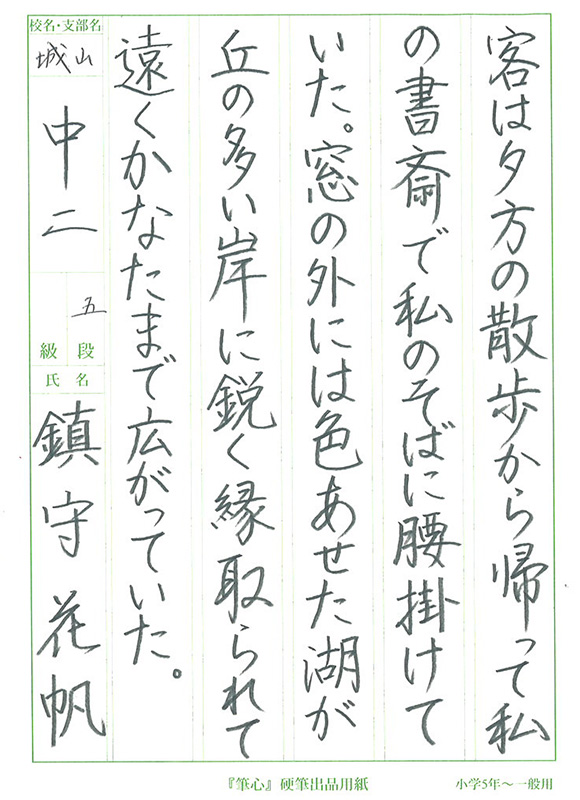 客は夕方の散歩から帰って私
の書斎で私のそばに腰掛けて
いた。窓の外には色あせた湖が
丘の多い岸に鋭く縁取られて
遠くかなたまで広がっていた。
校名・支部名
城山
中二
五
級 段
氏 名
鎮守花帆
『筆心』硬筆出品用紙
小学5年～一般用